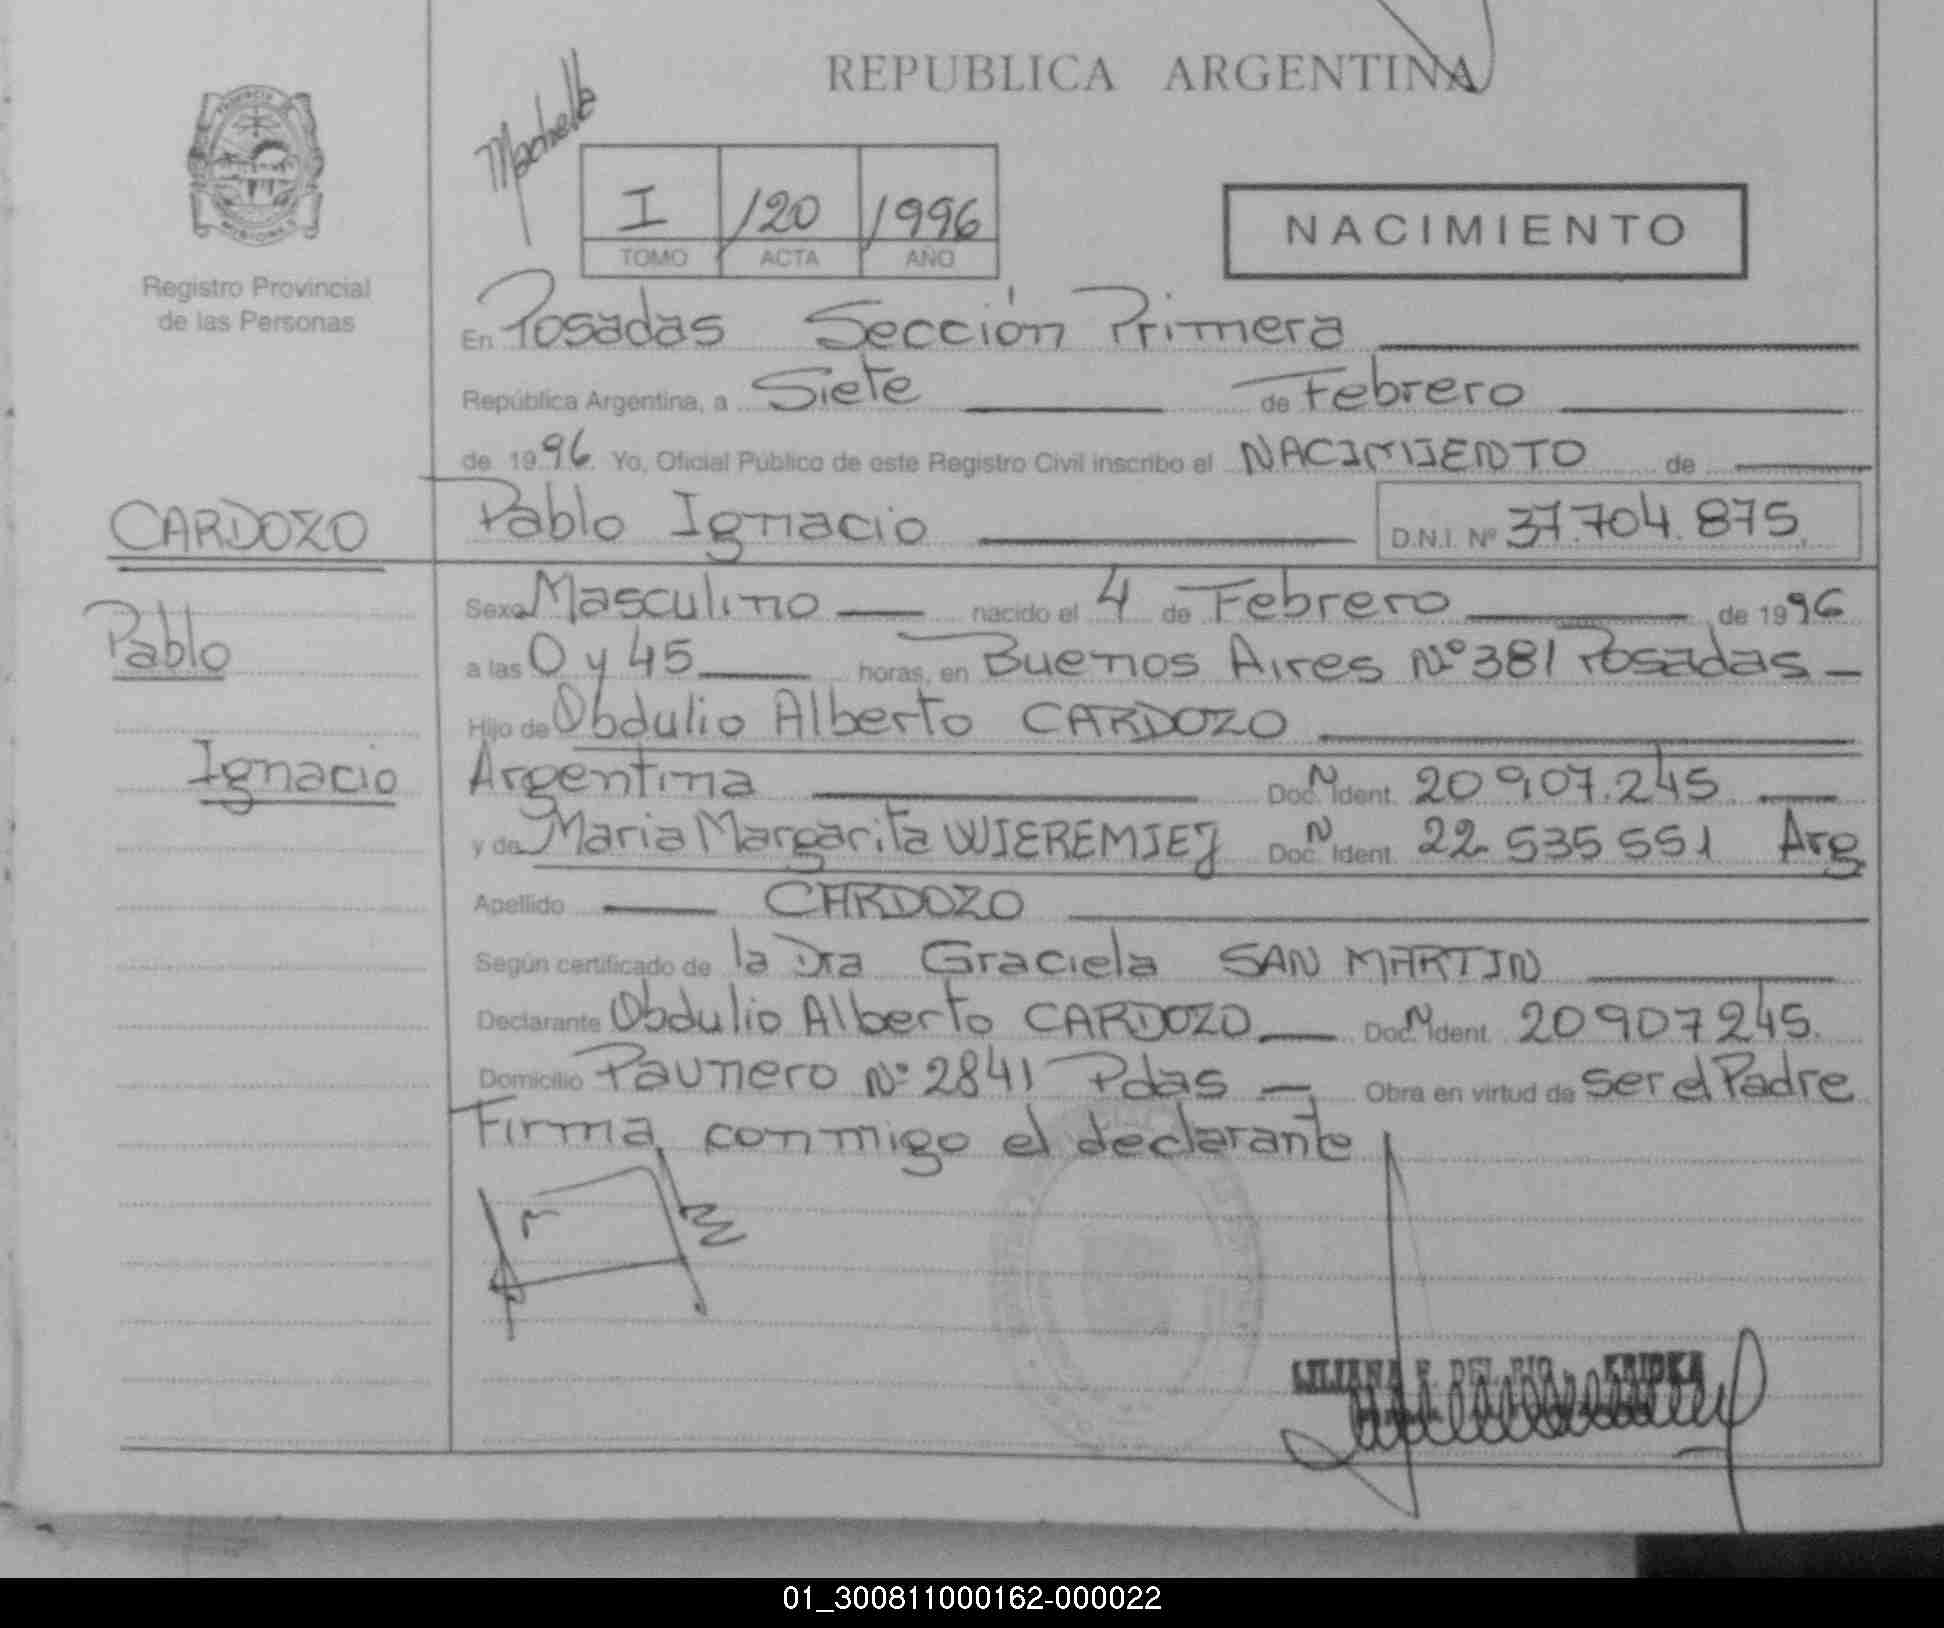 REPUBLICA ARGENTINA
I 120 1996
TOMO ACTA AÑO
NACIMIENTO
Registro Provincial
de las Personas
En Posadas Sección Primera
República Argentina, a Siete de Febrero
de 1996. Yo, Oficial Público de este Registro Civil inscribo el NACIMIENTO de
CARDOZO Pablo Ignacio D.N.I. Nº 37.704.875
Sexo Masculino nacido el 4 de Febrero de 1996
Pablo a las 0 y 45 horas, en Buenos Aires Nº 381 Posadas
Hijo de Obdulio Alberto CARDOZO
Ignacio Argentina Doc. N Ident. 20 907.245
y de Maria Margarita WIEREMIEJ Doc. N Ident. 22 535 551 Arg
Apellido CARDOZO
Según certificado de la Dra Graciela SAN MARTIN
Declarante Obdulio Alberto CARDOZO Doc. N Ident. 20 907 245.
Domicilio Paunero Nº 2841 Pdas Obra en virtud de ser el Padre
Firma conmigo el declarante
LILIANA
01_300811000162-000022